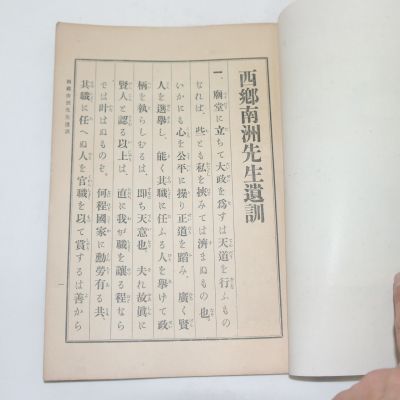 西鄕南洲先生遺訓
一、廟堂に立ちて大政を爲すは天道を行ふもの
なれば、些とも私を挾みては濟まぬもの也。
いかにも心を公平に操り正道を踏み、廣く賢
人を選擧し、能く其職に任ふる人を擧けて政
柄を執らしむるは、卽ち天意也。夫れ故眞に
賢人と認る以上は、直に我が職を讓る程なら
では叶はぬものぞ。何程國家に勳勞有る共、
其職に任へぬ人を官職を以て賞するは善から
西鄕南洲先生遺訓
一